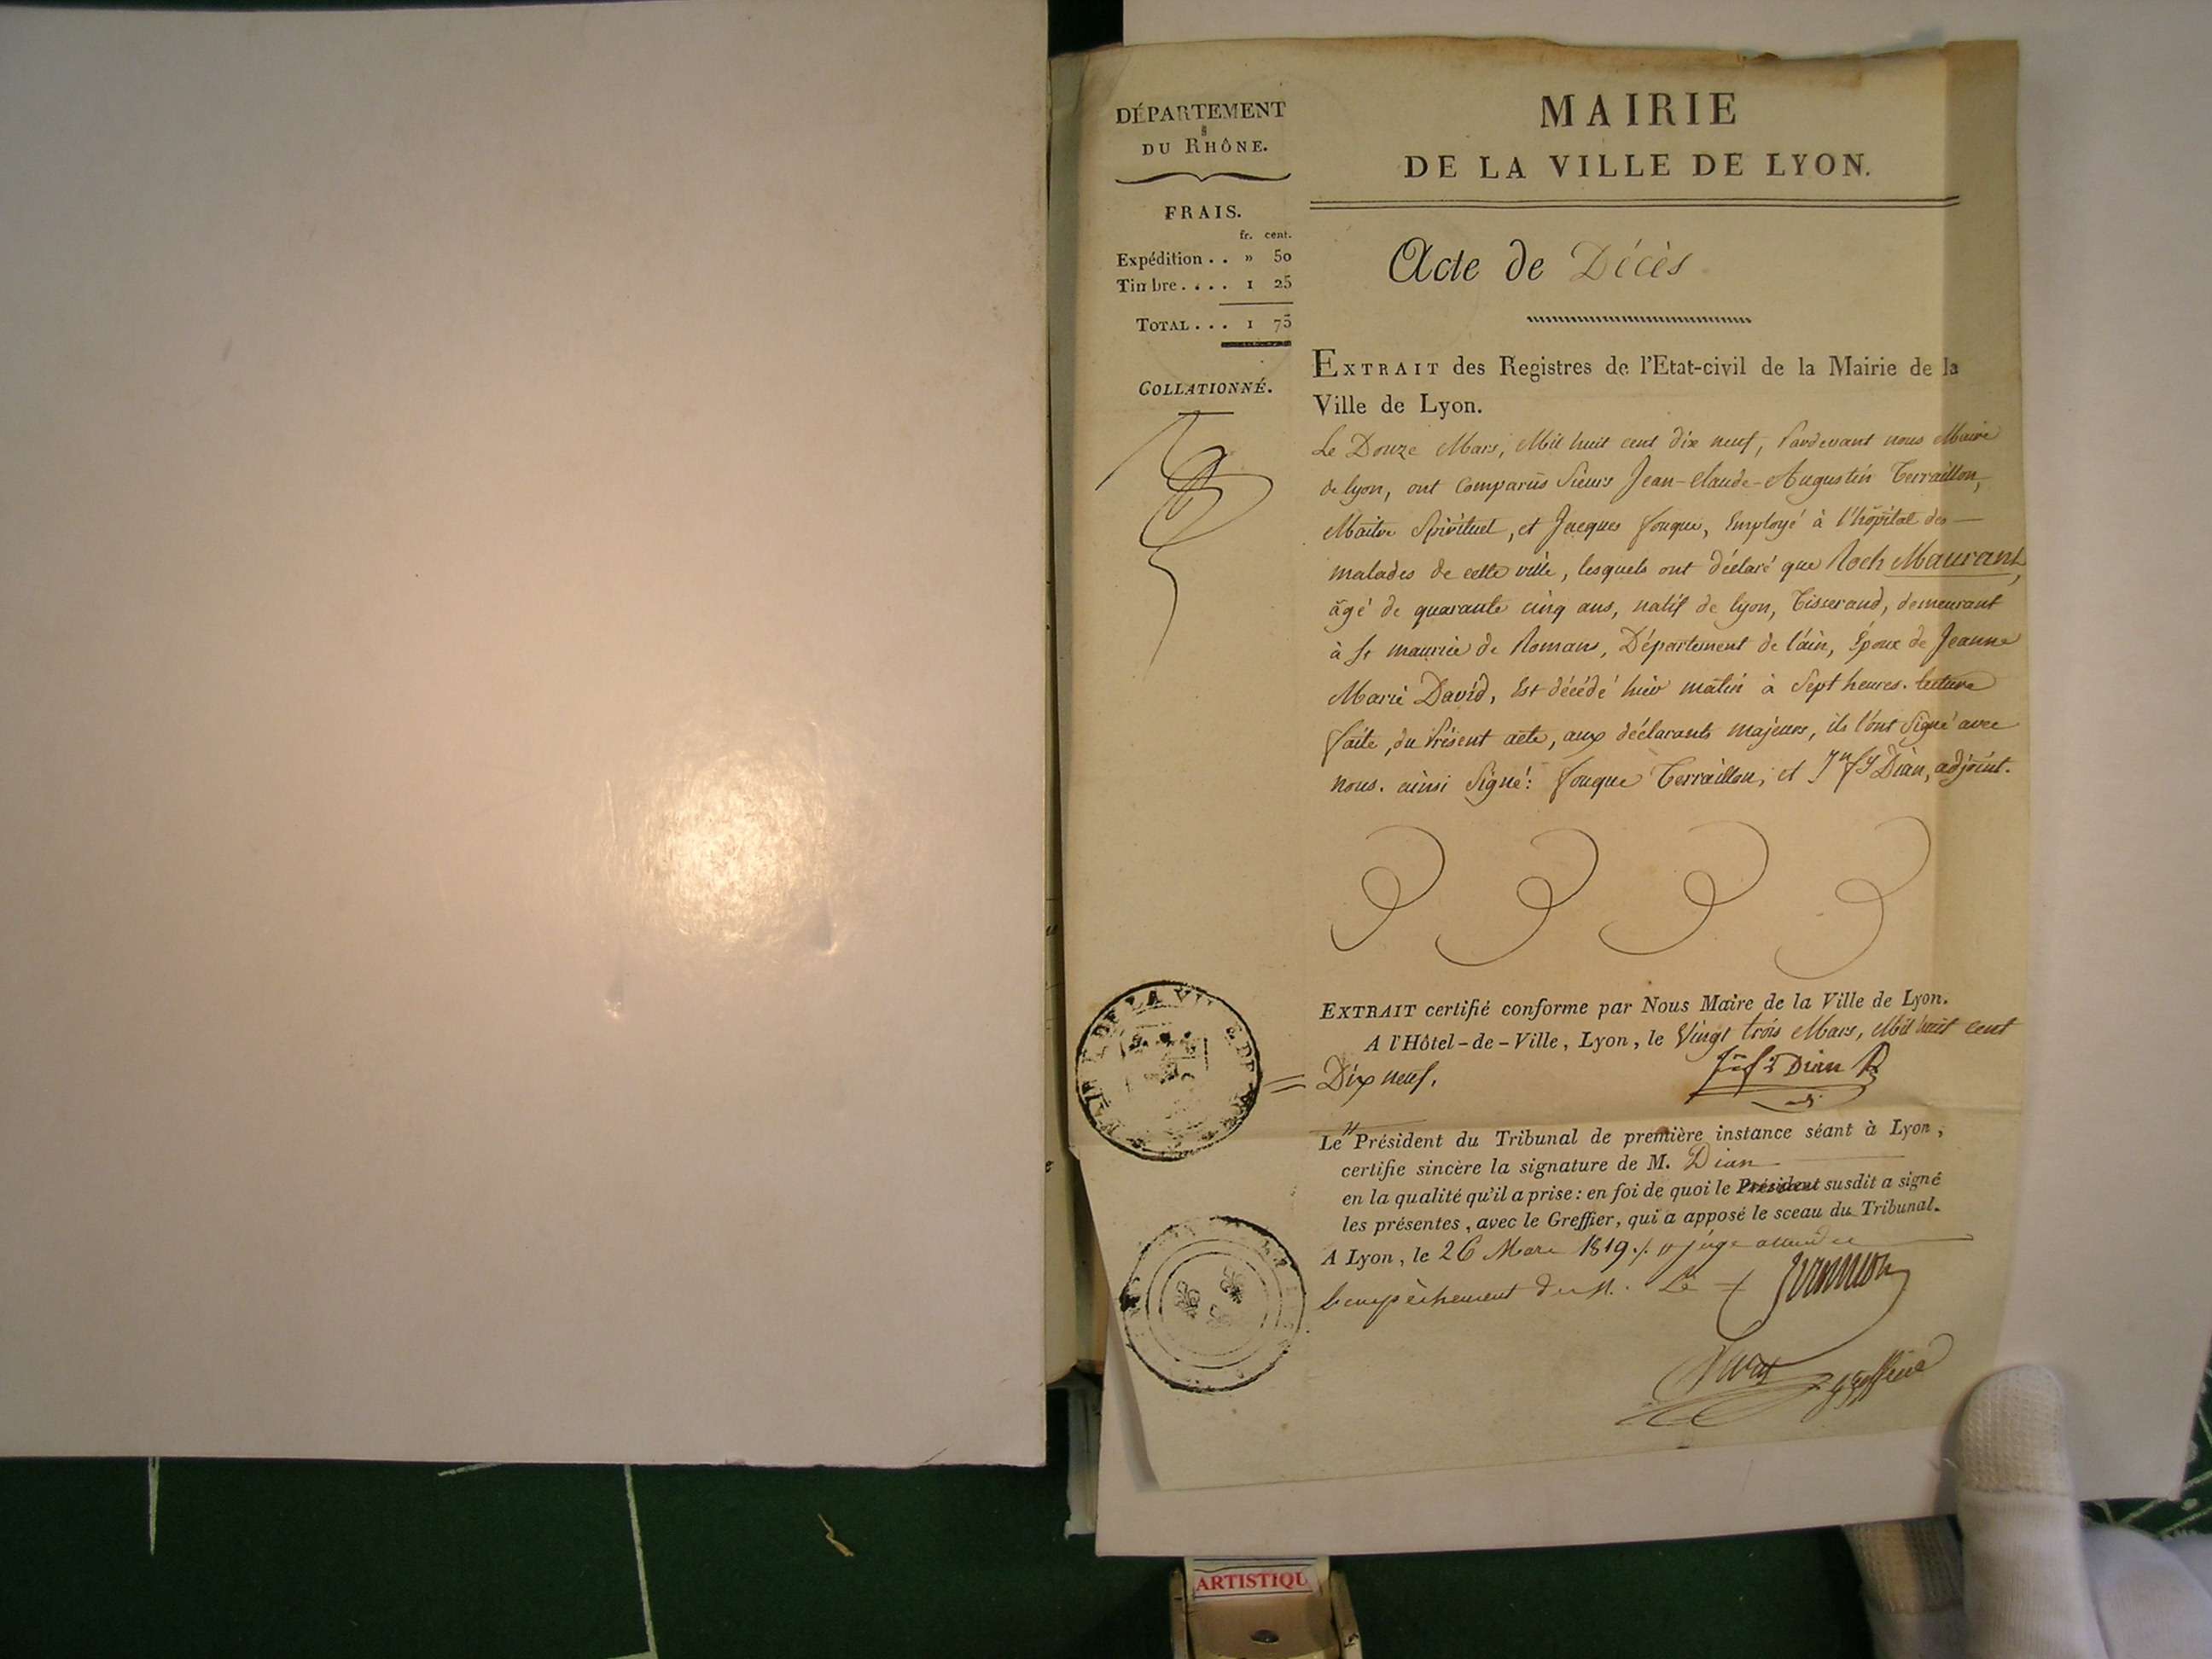 DÉPARTEMENT
DU RHÔNE.
FRAIS.
fr. cent.
Expédition . . » 50
Timbre . . . . 1 25
TOTAL . . . 1 75
COLLATIONNÉ.
MAIRIE
DE LA VILLE DE LYON.
Acte de Décès
EXTRAIT des Registres de l'Etat-civil de la Mairie de la
Ville de Lyon.
Le Douze Mars, Mil huit cent dix neuf, Pardevant nous Maire
de lyon, ont Comparus Sieurs Jean-Claude-Augustin Terraillon,
Maitre Spirituel, et Jacques fouque, Employé à l'hôpital des
malades de cette ville, lesquels ont déclaré que Roch Maurant,
âgé de quarante cinq ans, natif de lyon, Tisserand, demeurant
à St maurice de Romans, Département de l'ain, Epoux de Jeanne
Marie David, Est décédé hier matin à Sept heures. lecture
faite, du Présent acte, aux déclarants majeurs, ils l'ont Signé avec
nous. ainsi Signé: fouque Terraillon, et Jn fs Dian, adjoint.
EXTRAIT certifié conforme par Nous Maire de la Ville de Lyon.
A l'Hôtel-de-Ville, Lyon, le Vingt trois Mars, Mil huit cent
Dix neuf.
Jn fs Dian
Le Président du Tribunal de première instance séant à Lyon,
certifie sincère la signature de M. Dian
en la qualité qu'il a prise : en foi de quoi le Président susdit a signé
les présentes, avec le Greffier, qui a apposé le sceau du Tribunal.
A Lyon, le 26 Mars 1819 ./. juge
L'empêchement du
greffier
ARTISTIQU